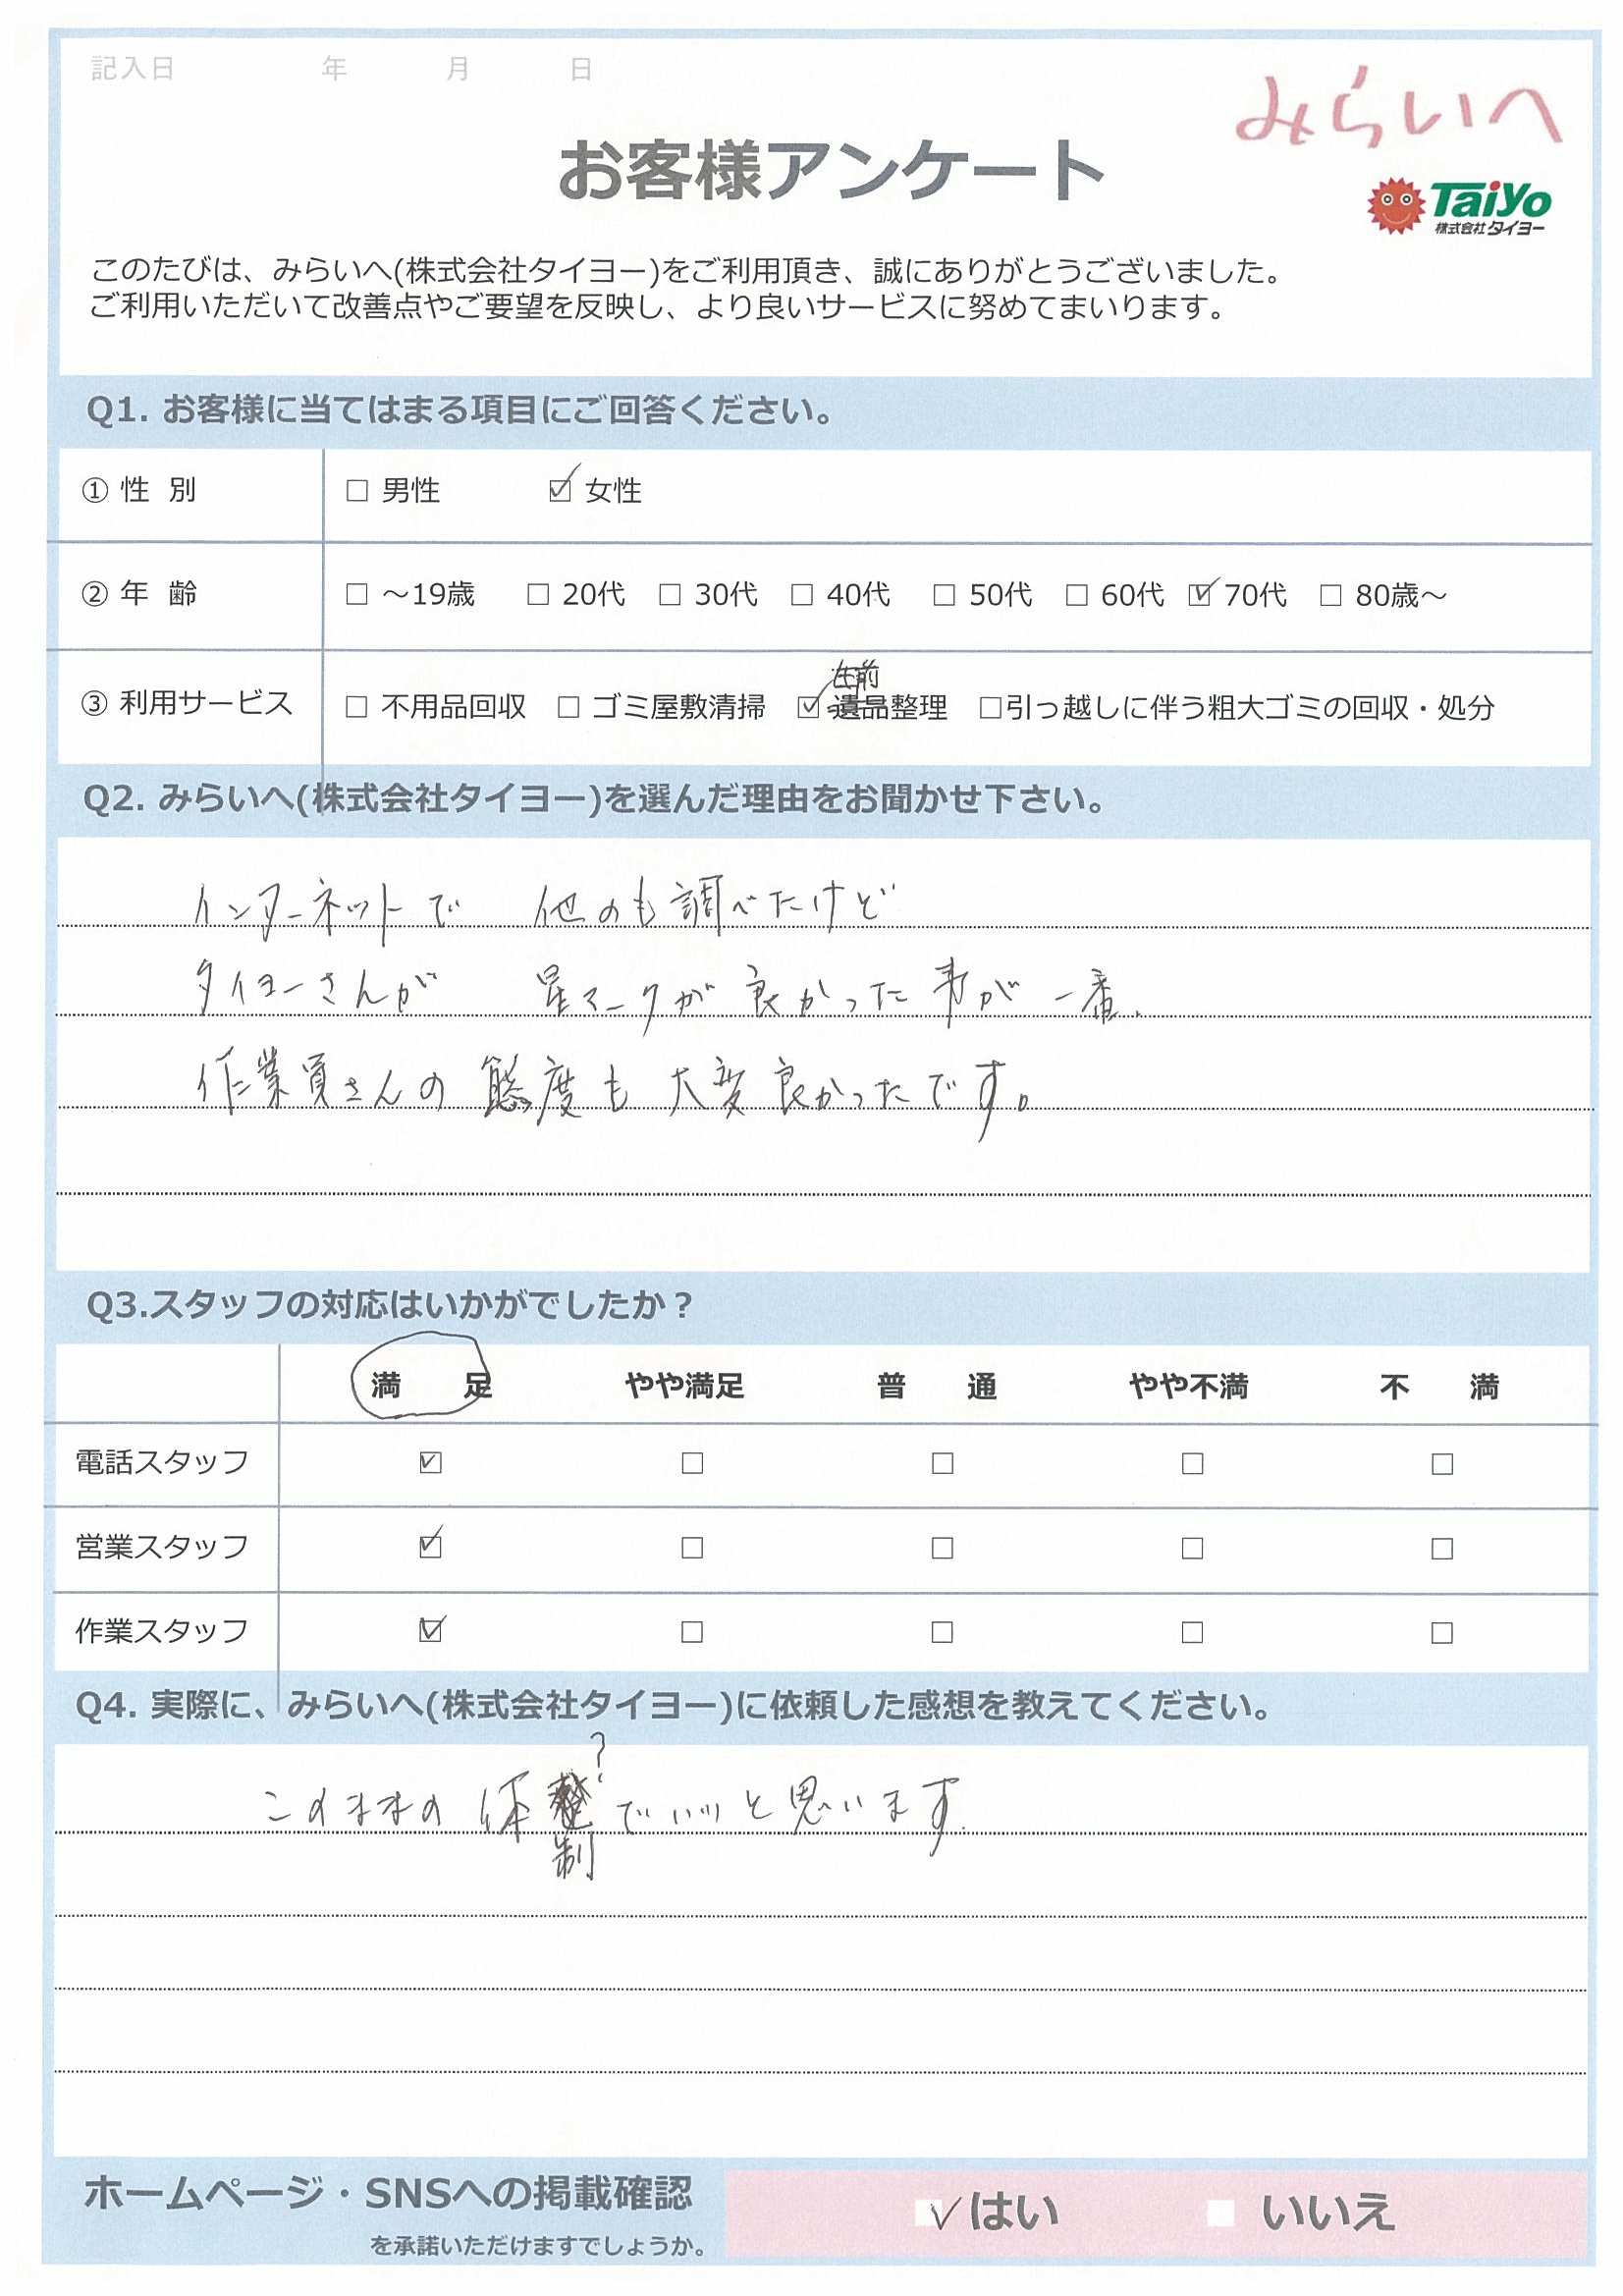 記入日 年 月 日
みらいへ
お客様アンケート
Taiyo
株式会社タイヨー
このたびは、みらいへ(株式会社タイヨー)をご利用頂き、誠にありがとうございました。
ご利用いただいて改善点やご要望を反映し、より良いサービスに努めてまいります。
Q1. お客様に当てはまる項目にご回答ください。
① 性 別 □ 男性 ☑ 女性
② 年 齢 □ ～19歳 □ 20代 □ 30代 □ 40代 □ 50代 □ 60代 ☑ 70代 □ 80歳～
生前
③ 利用サービス □ 不用品回収 □ ゴミ屋敷清掃 ☑ 遺品整理 □引っ越しに伴う粗大ゴミの回収・処分
Q2. みらいへ(株式会社タイヨー)を選んだ理由をお聞かせ下さい。
インターネットで 他のも調べたけど
タイヨーさんが 星マークが良かった事が一番.
作業員さんの態度も大変良かったです。
Q3.スタッフの対応はいかがでしたか？
満 足 やや満足 普 通 やや不満 不 満
電話スタッフ ☑ □ □ □ □
営業スタッフ ☑ □ □ □ □
作業スタッフ ☑ □ □ □ □
Q4. 実際に、みらいへ(株式会社タイヨー)に依頼した感想を教えてください。
?
このままの体でいいと思います
制
ホームページ・SNSへの掲載確認
を承諾いただけますでしょうか。
☑はい □ いいえ